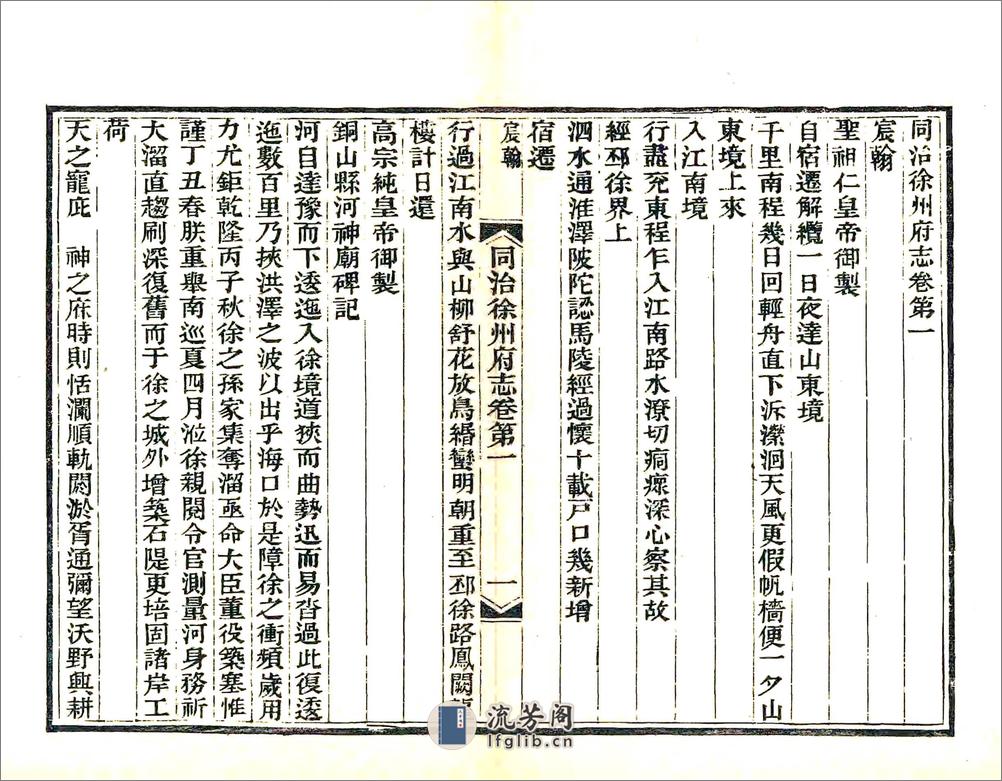 同治徐州府志卷第一
宸翰
聖祖仁皇帝御製
自宿遷解纜一日夜達山東境
千里南程幾日回輕舟直下泝瀠洄天風更假帆檣便一夕山
東境上來
入江南境
行盡兗東程乍入江南路水潦切痌瘝深心察其故
經邳徐界上
泗水通淮澤陂陀認馬陵經過懷十載戸口幾新增
宿遷
宸翰
同治徐州府志卷第一
一
行過江南水與山柳舒花放鳥緡蠻明朝重至邳徐路鳳闕
樓計日還
高宗純皇帝御製
銅山縣河神廟碑記
河自達豫而下逶迤入徐境道狹而曲勢迅而易沓過此復逶
迤數百里乃挾洪澤之波以出乎海口於是障徐之衝頻歲用
力尤鉅乾隆丙子秋徐之孫家集奪溜亟命大臣董役築塞惟
謹丁丑春朕重舉南巡夏四月涖徐親閱令官測量河身務祈
大溜直趨刷深復舊而于徐之城外增築石隄更培固諸岸工
荷
天之寵庇　神之庥時則恬瀾順軌閼淤胥通彌望沃野興耕
流芳阁
lfglib.cn